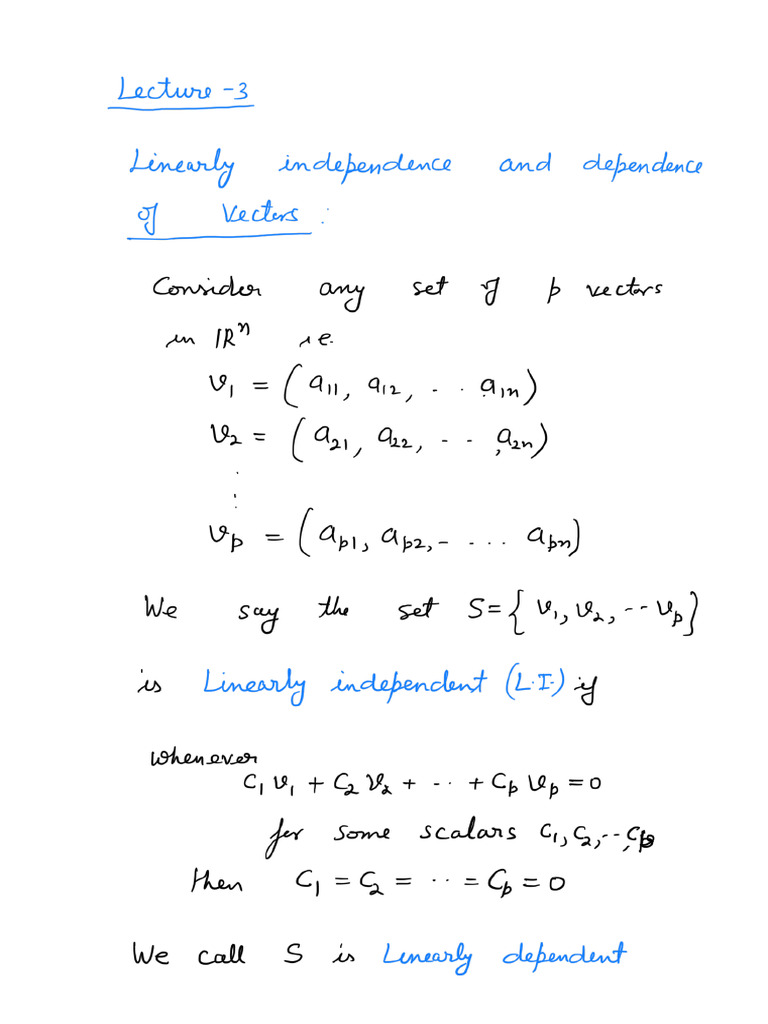 Lecture -3
Linearly independence and dependence
of vectors :
Consider any set of p vectors
in ℝⁿ i.e.
v₁ = (a₁₁, a₁₂, . . a₁ₙ)
v₂ = (a₂₁, a₂₂, - - , a₂ₙ)
⋮
vₚ = (aₚ₁, aₚ₂, - . . . . aₚₙ)
We say the set S = { v₁, v₂, -- vₚ}
is Linearly independent (L.I.) if
whenever
c₁ v₁ + c₂ v₂ + - .. + cₚ vₚ = 0
for some scalars c₁, c₂, --, cₚ
then c₁ = c₂ = .. = cₚ = 0
We call S is Linearly dependent